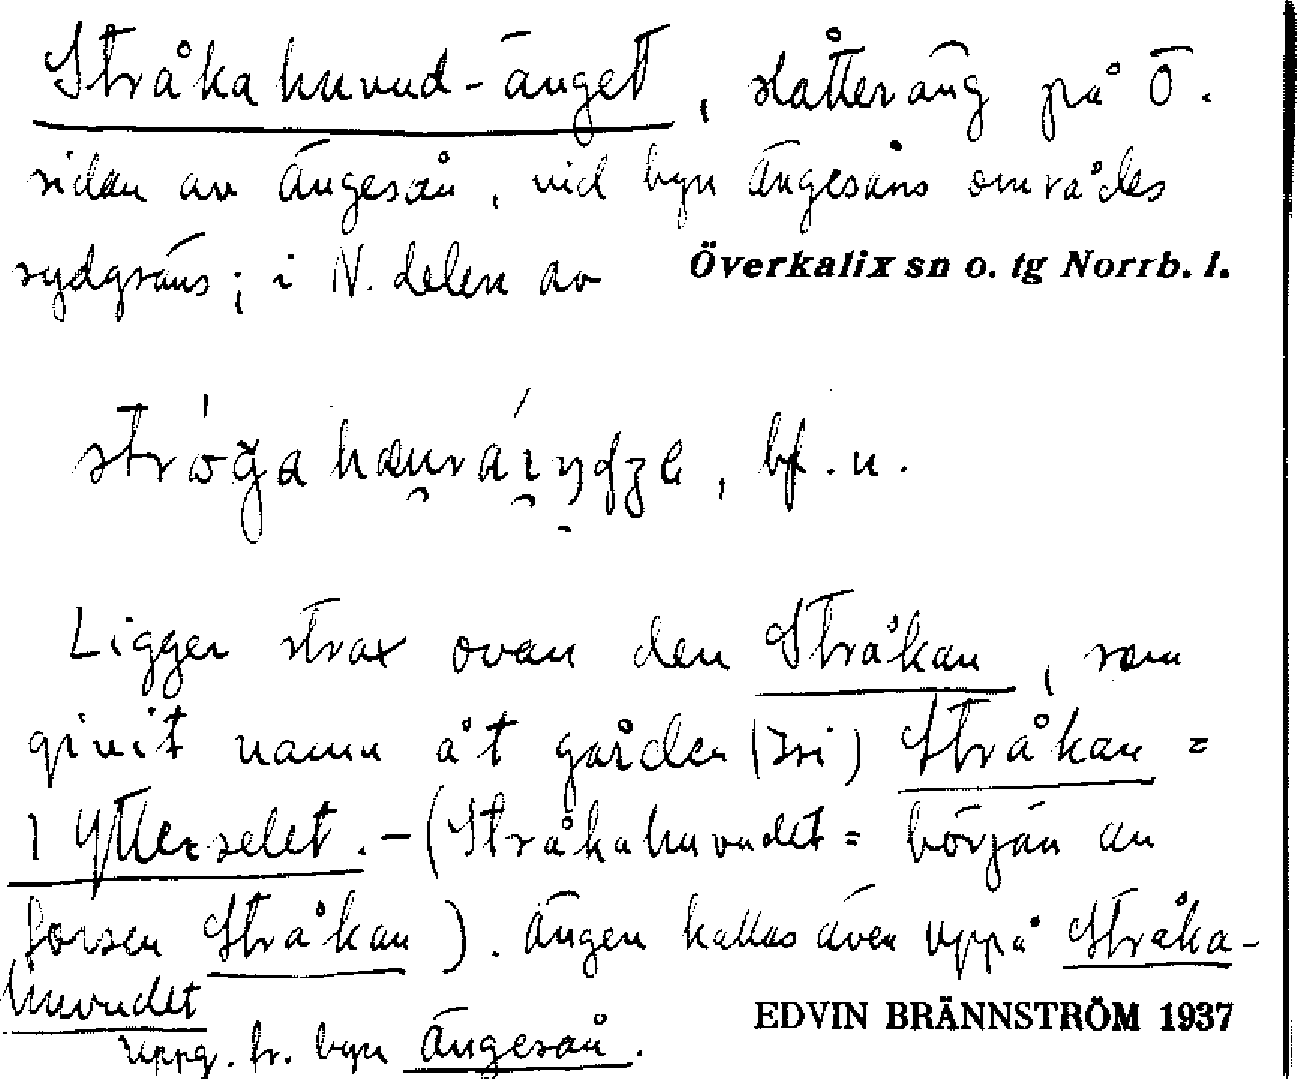 Stråkahuvud-änget, slåtteräng på Ö.
sidan av Ängesån, vid byn Ängesåns områdes
sydgräns; i N. delen av Överkalix sn o. tg Norrb. l.
bf. n.
Ligger strax ovan den Stråkan, som
givit namn åt gården (3si) Stråkan =
1 Ytterselet. – (Stråkahuvudet = början av
forsen Stråkan). Ängen kallas även uppå Stråka-
huvudet
EDVIN BRÄNNSTRÖM 1937
Uppg. fr. byn Ängesån.